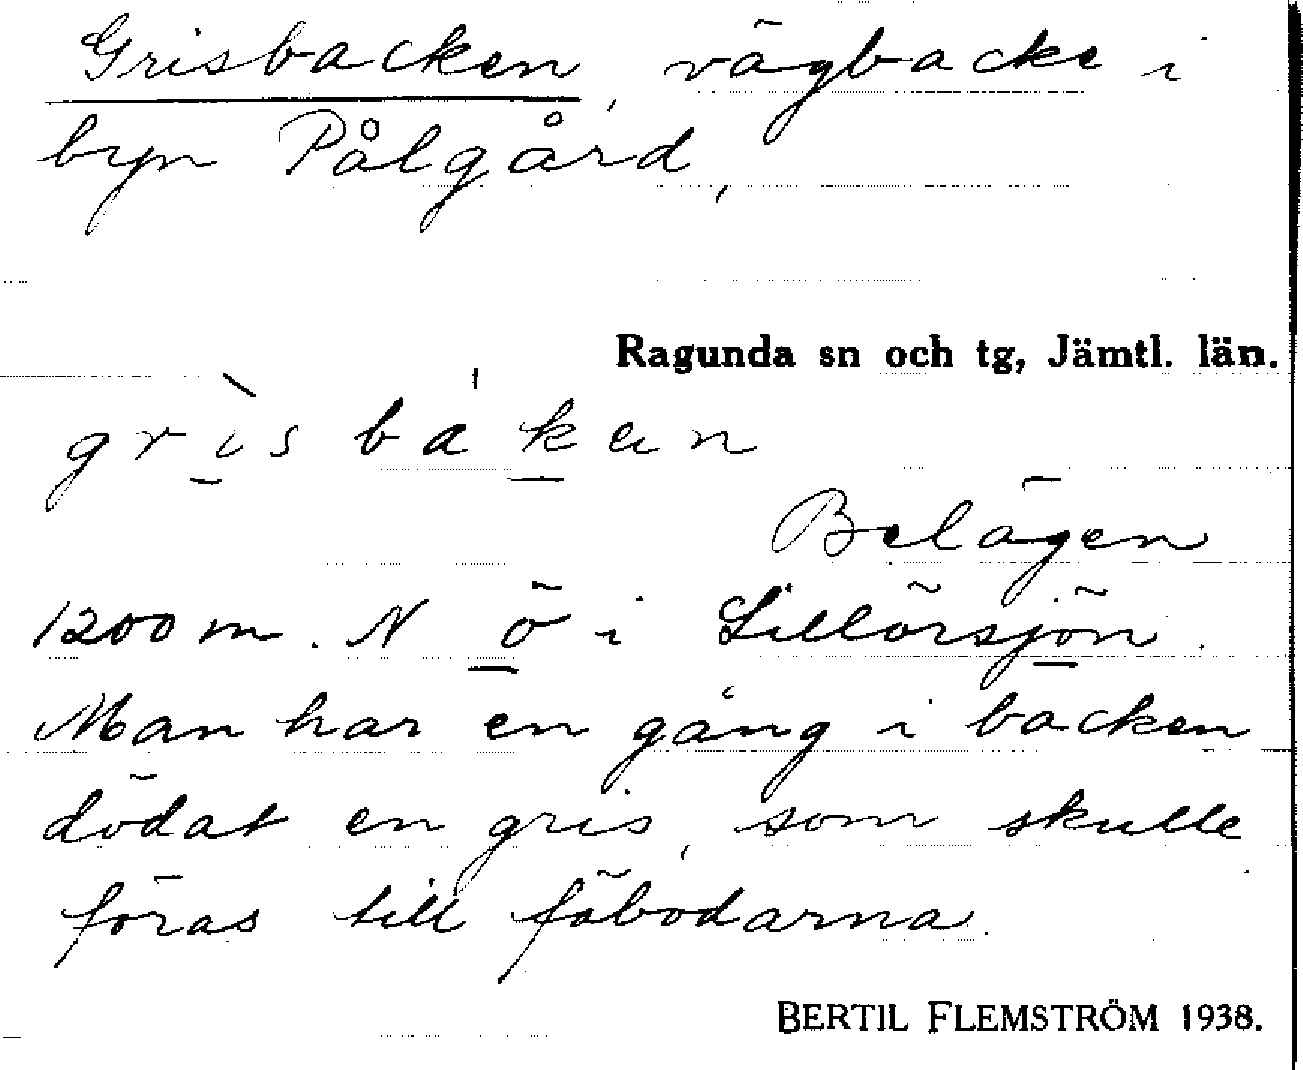 Grisbacken, vägbacke i
byn Pålgård,
Ragunda sn och tg, Jämtl. län.
grìsbákan
Belägen
1200 m. N ö i Lillörsjön.
Man har en gång i backen
dödat en gris, som skulle
föras till fäbodarna.
BERTIL FLEMSTRÖM 1938.